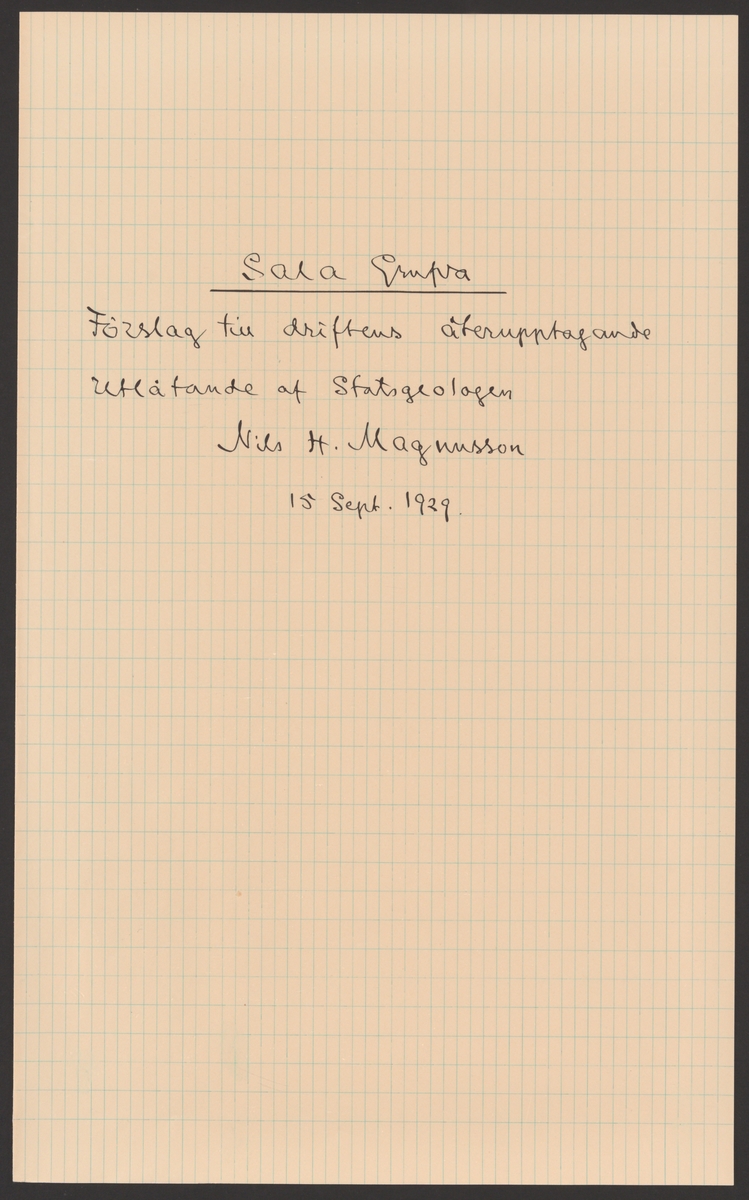 Sala Grufva
Förslag till driftens återupptagande
Utlåtande af Statsgeologen
Nils H. Magnusson
15 Sept. 1929.